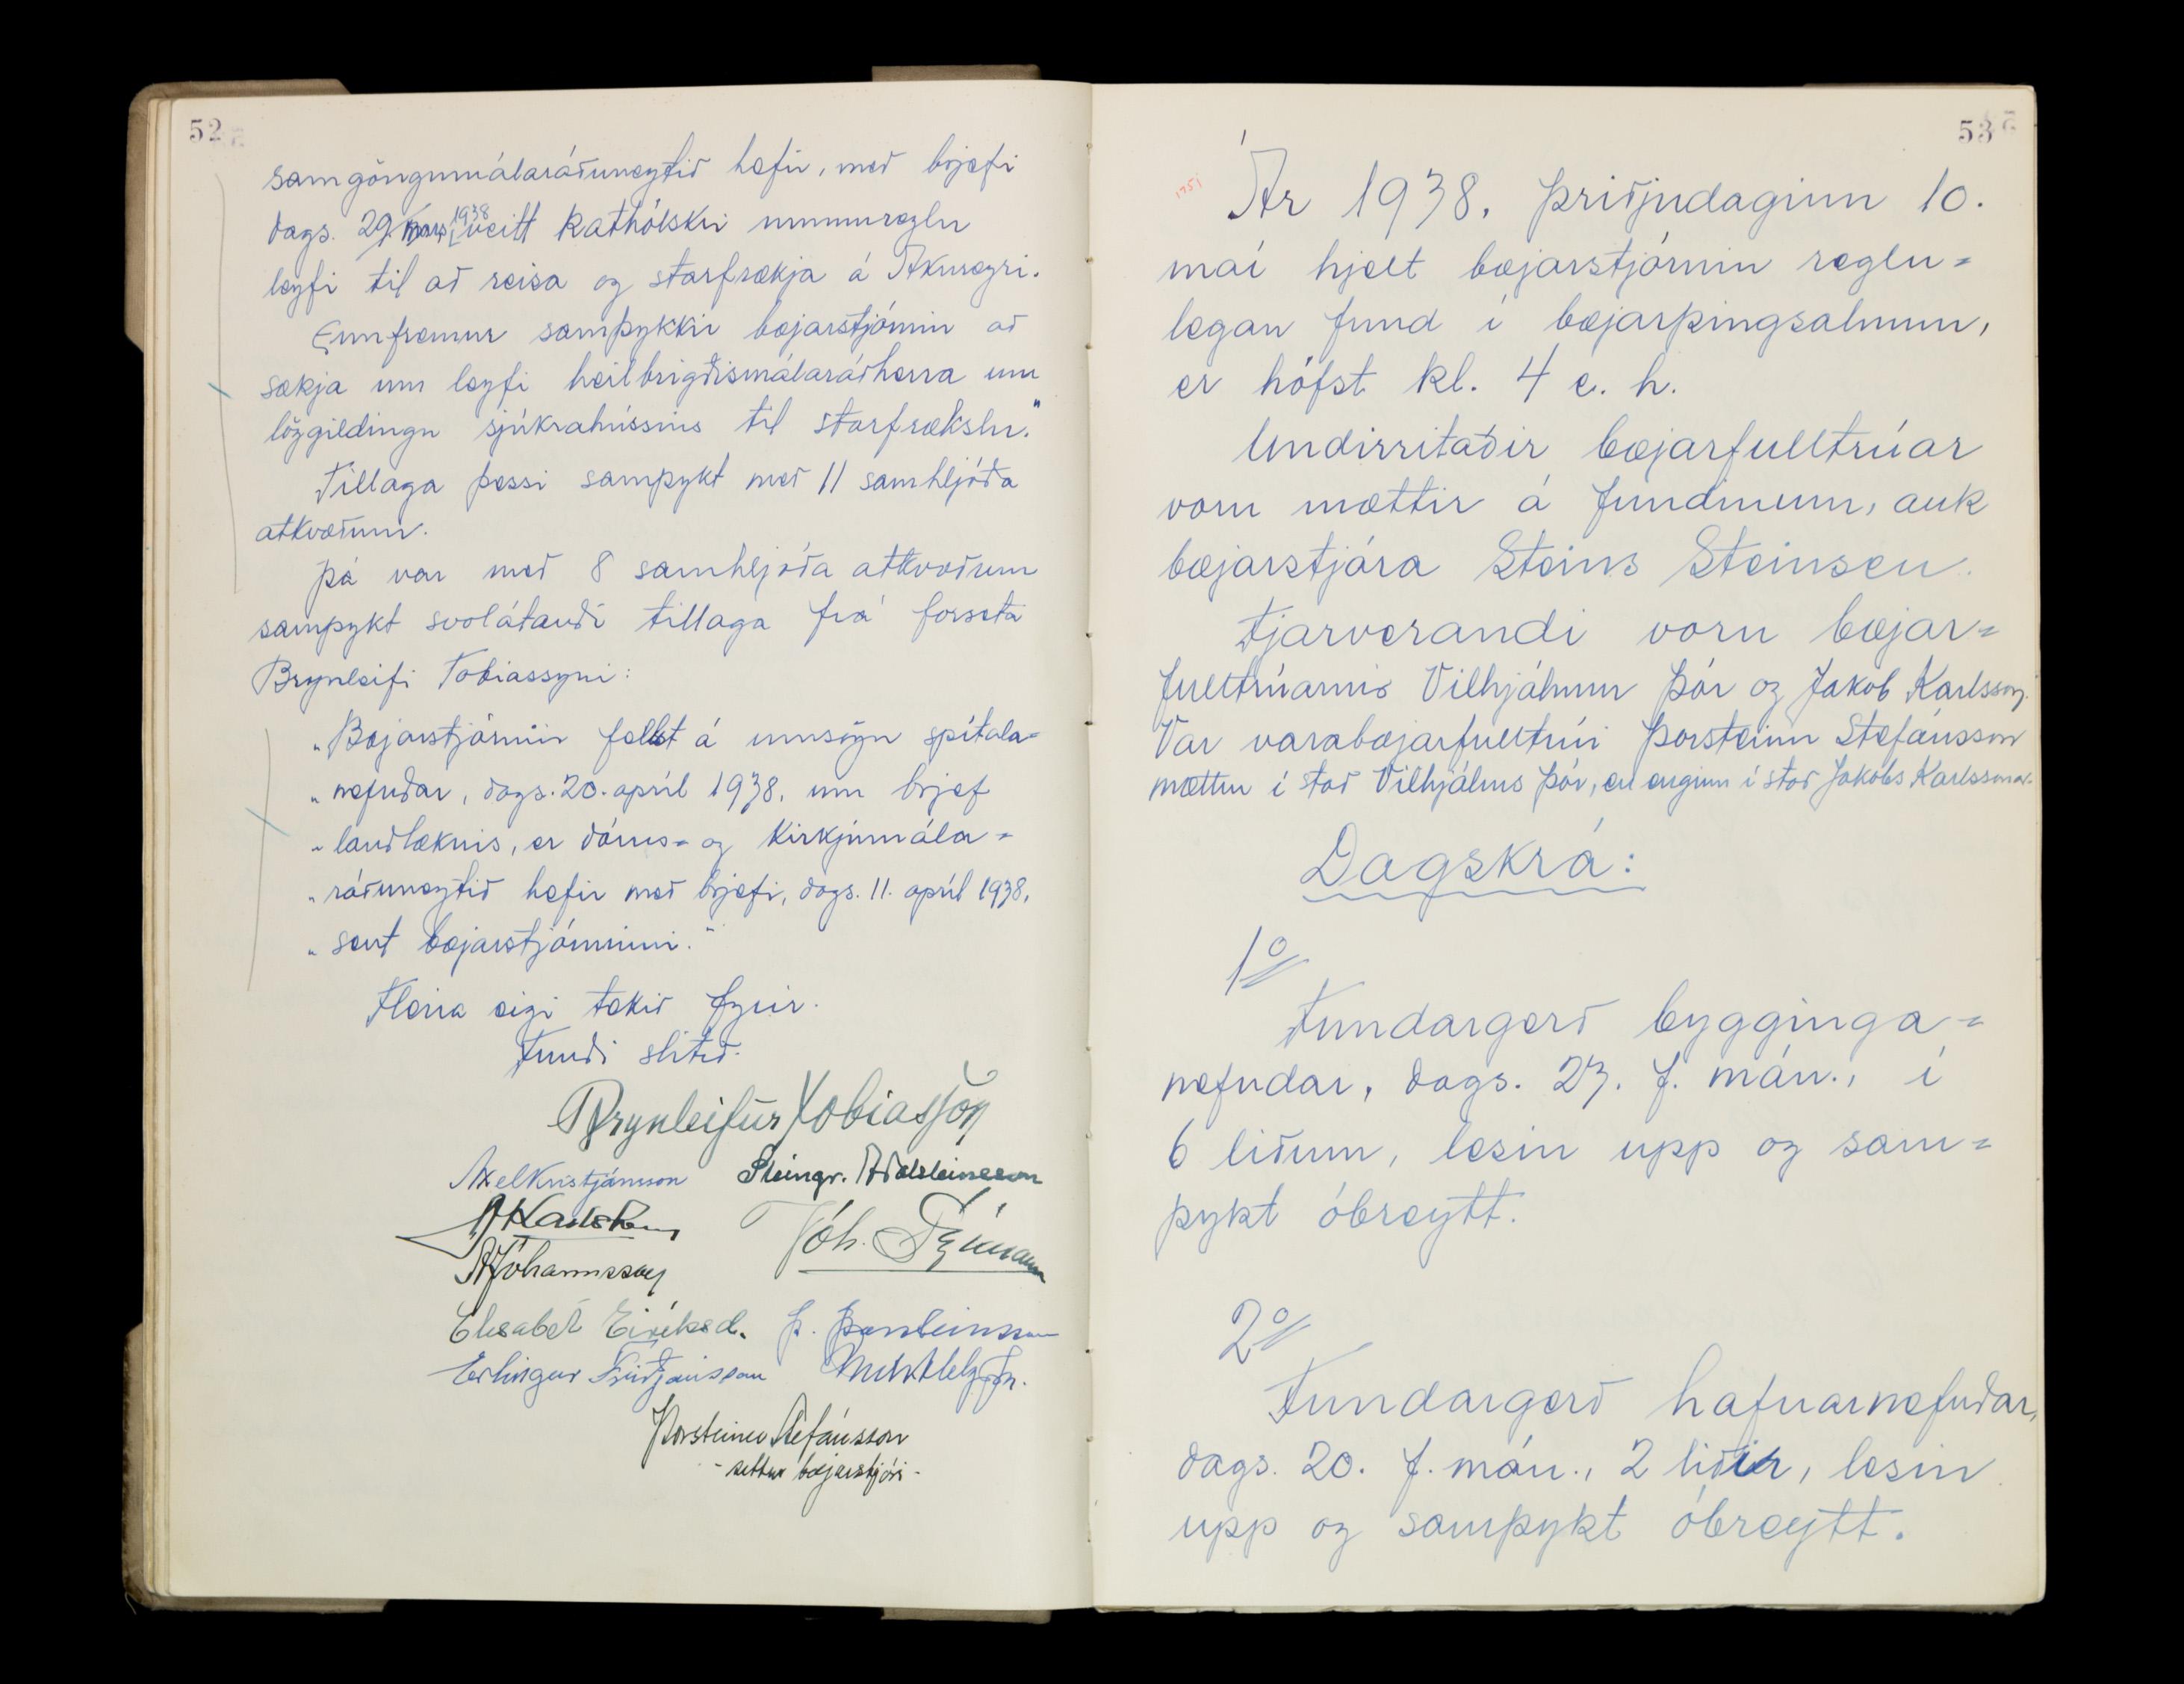 52
samgöngumálaráðuneytið hefir, með brjefi
dags. 29. mars 1938 veitt kathólskri nunnureglu
leyfi til að reisa og starfrækja á Akureyri.
Ennfremur samþykkir bæjarstjórnin að
sækja um leyfi heilbrigðismálaráðherra um
löggildingu sjúkrahússins til starfrækslu."
Tillaga þessi samþykt með 11 samhljóða
atkvæðum.
Þá var með 8 samhljóða atkvæðum
samþykt svolátandi tillaga frá forseta
Brynleifi Tobiassyni:
"Bæjarstjórnin felst á umsögn spítala=
"nefndar, dags. 20. apríl 1938, um brjef
"landlæknis, er dóms= og kirkjumála=
"ráðuneytið hefir með brjefi, dags. 11. apríl 1938,
"sent bæjarstjórninni."
Fleira eigi tekið fyrir.
Fundi slitið.
Brynleifur Tobiasson
Axel Kristjánsson Steingr. Aðalsteinsson
Jóh.
Jóhannsson
Elisabet Eiríksd. Þ. Þorsteinsson
Erlingur Friðjónsson
Þorsteinn Stefánsson
- settur bæjarstjóri -
53
Ár 1938, þriðjudaginn 10.
maí hjelt bæjarstjórnin reglu=
legan fund í bæjarþingsalnum,
er hófst kl. 4 e. h.
Undirritaðir bæjarfulltrúar
voru mættir á fundinum, auk
bæjarstjóra Steins Steinsen.
Fjarverandi voru bæjar=
fulltrúarnir Vilhjálmur Þór og Jakob Karlsson.
Var varabæjarfulltrúi Þorsteinn Stefánsson
mættur í stað Vilhjálms Þór, en enginn í stað Jakobs Karlssonar.
Dagskrá:
1o
Fundargerð bygginga=
nefndar, dags. 27. f. mán., í
6 liðum, lesin upp og sam=
þykt óbreytt.
2o
Fundargerð hafnarnefndar,
dags. 20. f. mán., 2 liðir, lesin
upp og samþykt óbreytt.